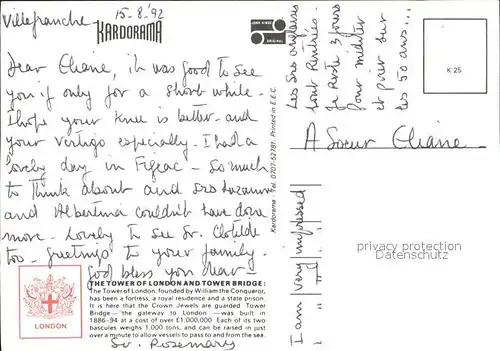 Villefranche 15-8-'92
KARDORAMA
JOHN HINDE
ORIGINAL
Dear Eliane, it was good to see
you if only for a short while -
I hope your knee is better - and
your vertigo especially - I had a
lovely day in Figeac - So much
to think about and Srs Lazarus
and Albertina couldn't have done
more - Lovely to see Sr. Clotilde
too - greetings to your family.
God bless you dear
THE TOWER OF LONDON AND TOWER BRIDGE:
The Tower of London, founded by William the Conqueror,
has been a fortress, a royal residence and a state prison.
It is here that the Crown Jewels are guarded. Tower
Bridge— the gateway to London —was built in
1886-94 at a cost of over £1,000,000. Each of its two
bascules weighs 1,000 tons, and can be raised in just
over a minute to allow vessels to enter the upper reaches.
Sr. Rosemary
LONDON
Kardorama - Tel. 0707-52781. Printed in E.E.C.
Les Srs anglaises
sont Rentrées.
Je Reste 3 jours
pour méditer
et prier sur
les 50 ans...
K 25
A Soeur Eliane
I am very impressed
" " " " !
privacy protection
Datenschutz